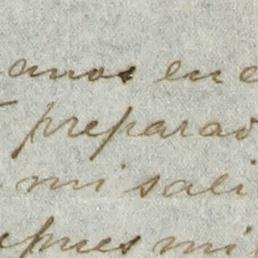 anos en e
preparad
mi sali
pues mi